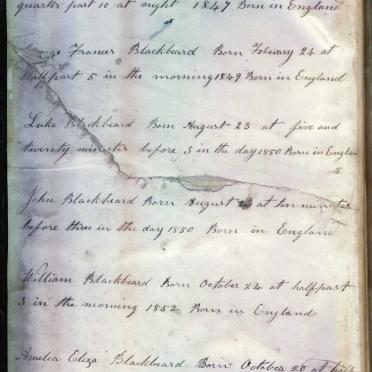 quarter past 10 at night 1847 Born in England
Frances Blackbeard Born Febuary 24 at
half past 5 in the morning 1849 Born in England
Luke Blackbeard Born August 23 at five and
twenty minutes before 3 in the day 1850 Born in Englan
John Blackbeard Born August at ten minutes
before three in the day 1850 Born in England
William Blackbeard Born October 24 at half past
3 in the morning 1852 Born in England
Amelia Eliza Blackbeard Born October 20 at half